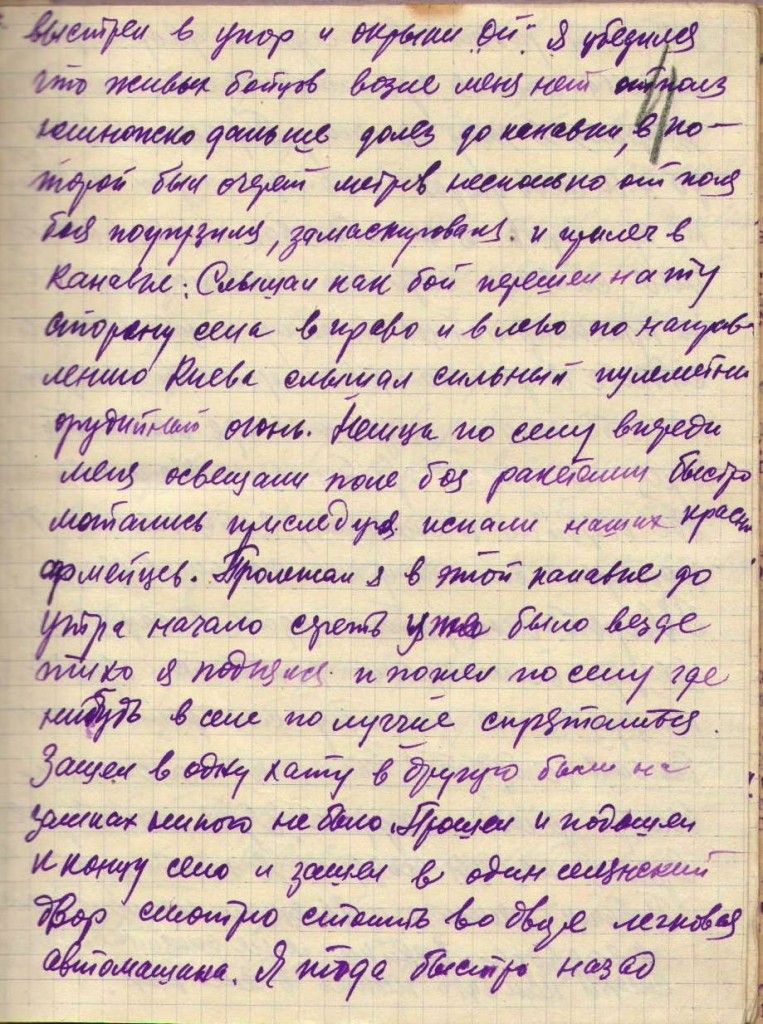 выстрел в упор и окрыки "Ой" я убедился
что живых бойцов возле меня нет отполз
немножко дальше долез до канавки, в ко-
торой был очерет метров несколько от поля
боя погрузился, замаскировался. и прилег в
канавке. Слышал как бой перешел на ту
сторону села в право и в лево по направ-
лению Киева слышал сильный пулеметни
орудийный огонь. Немцы по селу впереди
меня освещали поле боя ракетами быстро
мотались приследуя искали наших красно
армейцев. Пролежал я в этой канавке до
утра начало сереть уже было везде
тихо я поднялся и пошел по селу где
нибудь в селе по луччие спрятаться.
Зашел в одну хату в другую были на
замках никого не было. Прошел и подошел
к концу село и зашел в один сельский
двор смотрю стоить во дворе легковая
автомашина. Я тогда быстро назад